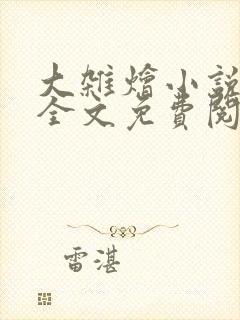 大雑燴小說
全文免費閱
雷湛